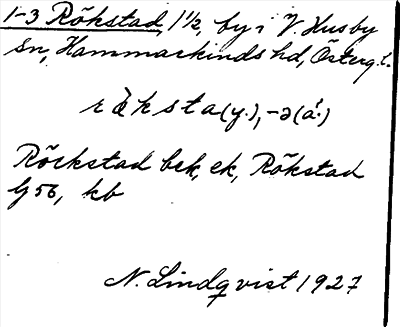 1-3 Rökstad, 1 1/2, by i V. Husby
sn, Hammarkinds hd, Österg. l.
rö̀ksta (y.), -ə (ä.)
Röckstad bek, ek, Rökstad
G 56, kb
N. Lindqvist 1927